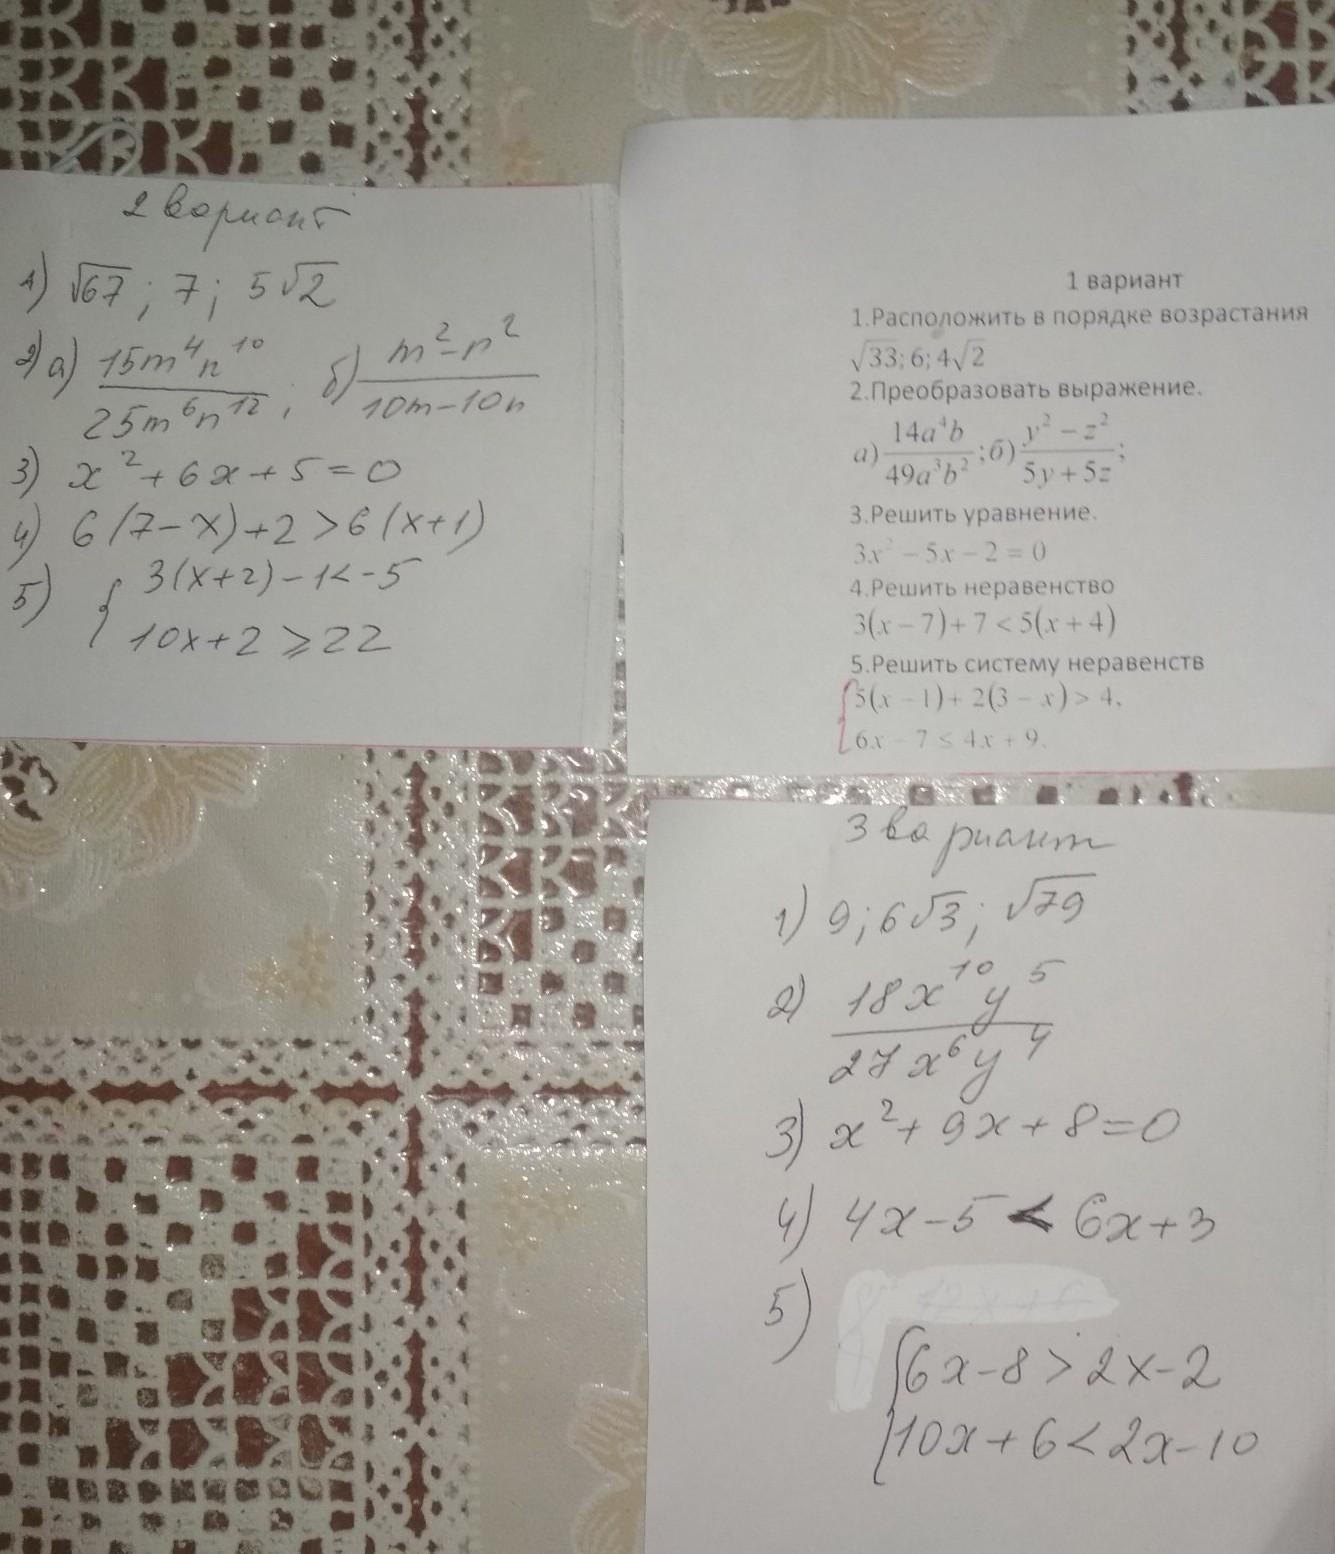 2 вариант
1) √67; 7; 5√2
2) а) 15m⁴n¹⁰/25m⁶n¹², б) m²-n²/10m-10n
3) x²+6x+5=0
4) 6(7-x)+2>6(x+1)
5) { 3(x+2)-1<-5
10x+2⩾22
1 вариант
1.Расположить в порядке возрастания
√33; 6; 4√2
2.Преобразовать выражение.
а) 14a⁴b/49a³b²; б) y² - z²/5y + 5z;
3.Решить уравнение.
3x² - 5x - 2 = 0
4.Решить неравенство
3(x - 7) + 7 < 5(x + 4)
5.Решить систему неравенств
{ 5(x - 1) + 2(3 - x) > 4,
6x - 7 ≤ 4x + 9.
3 вариант
1) 9; 6√3; √79
2) 18x¹⁰y⁵/27x⁶y⁴
3) x²+9x+8=0
4) 4x-5 < 6x+3
5)
{ 6x-8>2x-2
10x+6<2x-10